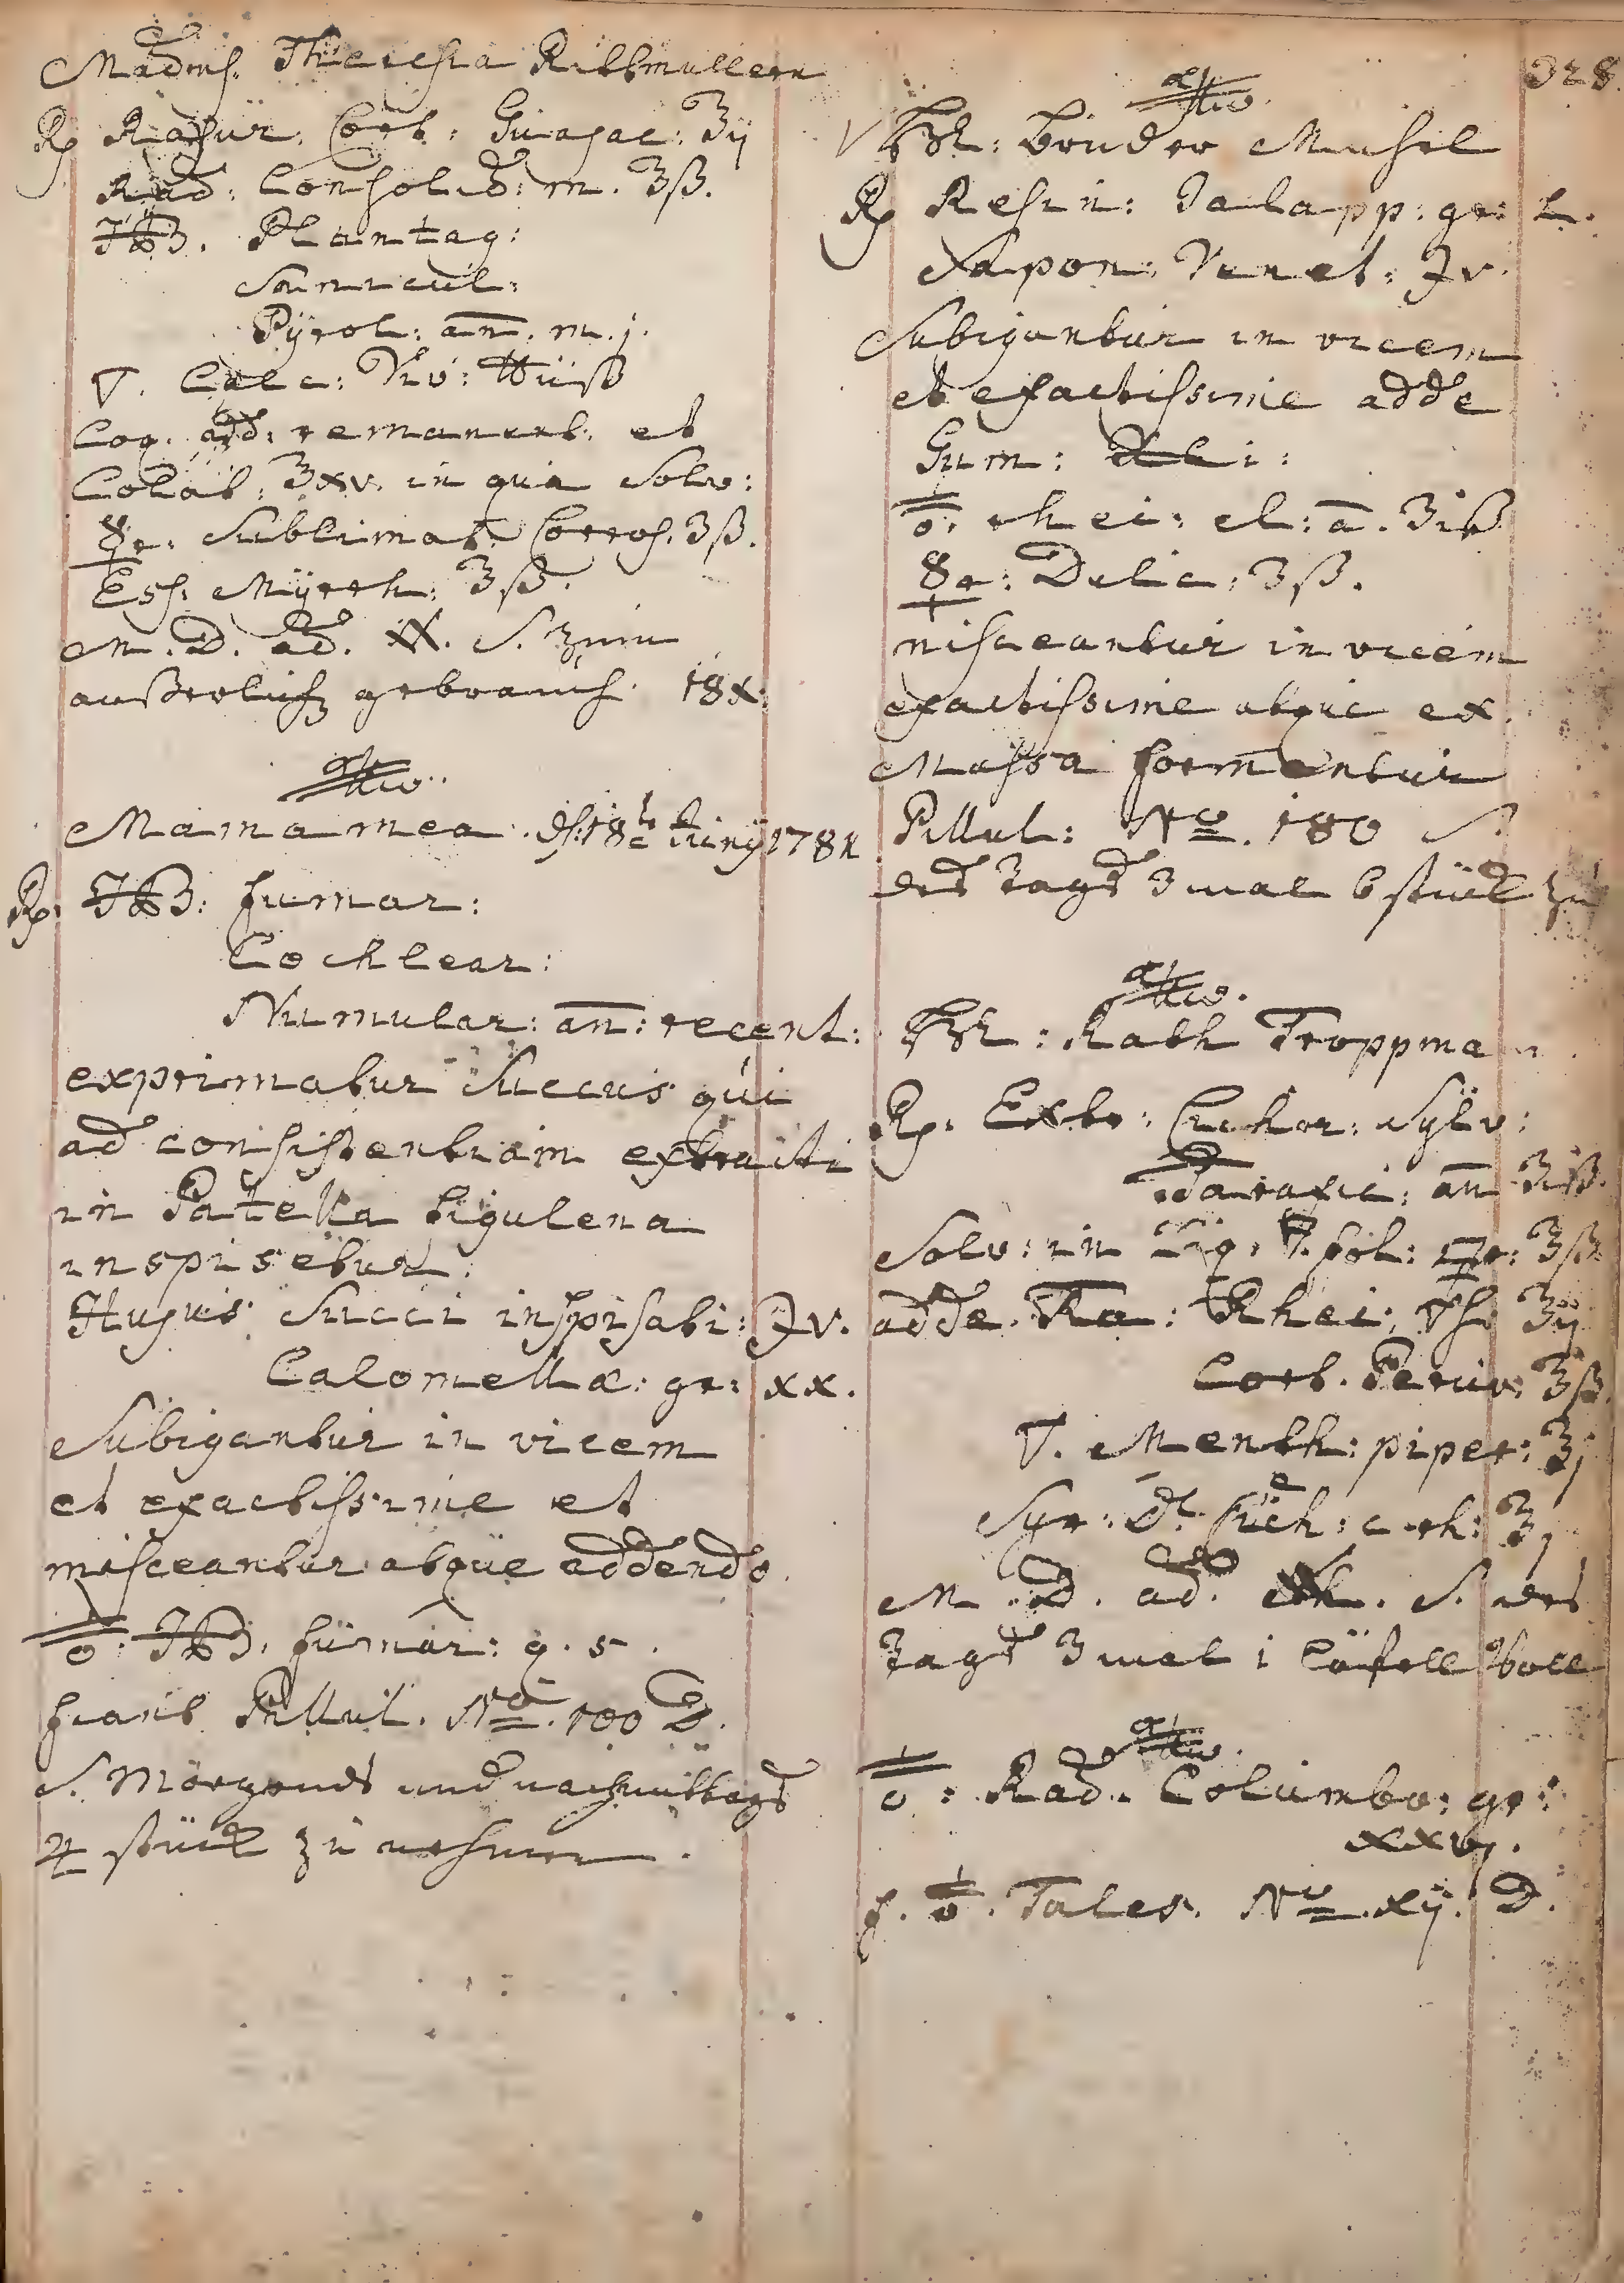 Madms. Theresia Rillmullerin
Rp Rasur. Cort. Guajac: ʒij
Rad: Consolid: m. ʒß.
Hb. Plantag:
Sanicul:
Pyrol: an. m. j.
Calc: Viv:
Coq. ad. remanent. et
Colat. ʒxv. in qua Solv:
☿r: Sublimat. Corros. ʒß.
Ess. Myrrh: ʒß.
M. D. ad. S. zum
außerlich gebrauch. 18x.
Mama mea. 18 Juny 178
Rp. Hb: fumar:
Cochlear:
Numular: an: recent:
exprimatur Succus qui
ad consistentiam extracti
in Patella figulena
inspisetur.
Hujus Succi inspisati: ʒv.
Calomellæ: gr: xx.
Subigantur in vicem
et exactissime et
misceantur atque addendo.
Hb. fumar: q. s.
fiant Pillul. No. 100 D.
S. Morgends und nachmittags
4 stück zu nehmen.
328.
Hr: Bruder Musil
Rp Resin: Jalapp: gr: L.
Sapon: Venet: ʒv.
Subigantur in vicem
et exactissime adde
Gum:
rhei: el: a. ʒiß
☿r: Dulc: ʒß.
misceantur in vicem
exactissime atque ex
Massa formentur
Pillul: No. 180 S.
des Tags 3 mal 6 stück zu
Hr: Rath Troppman
Rp. Extr: Cichor: Sylv:
Taraxic: an ʒiß.
Solv: in Liq. fol: ʒß.
adde. Ra: Rhei: ʒij
Cort. Peruv: ʒß.
Menth: piper: ʒj
Syr: Cich: c rh: ʒj
M. D. ad. S. des
Tags 3 mal 1 Löfell voll
Rad. Columbo: gr:
xxvj.
f. Tales. No. xij. D.